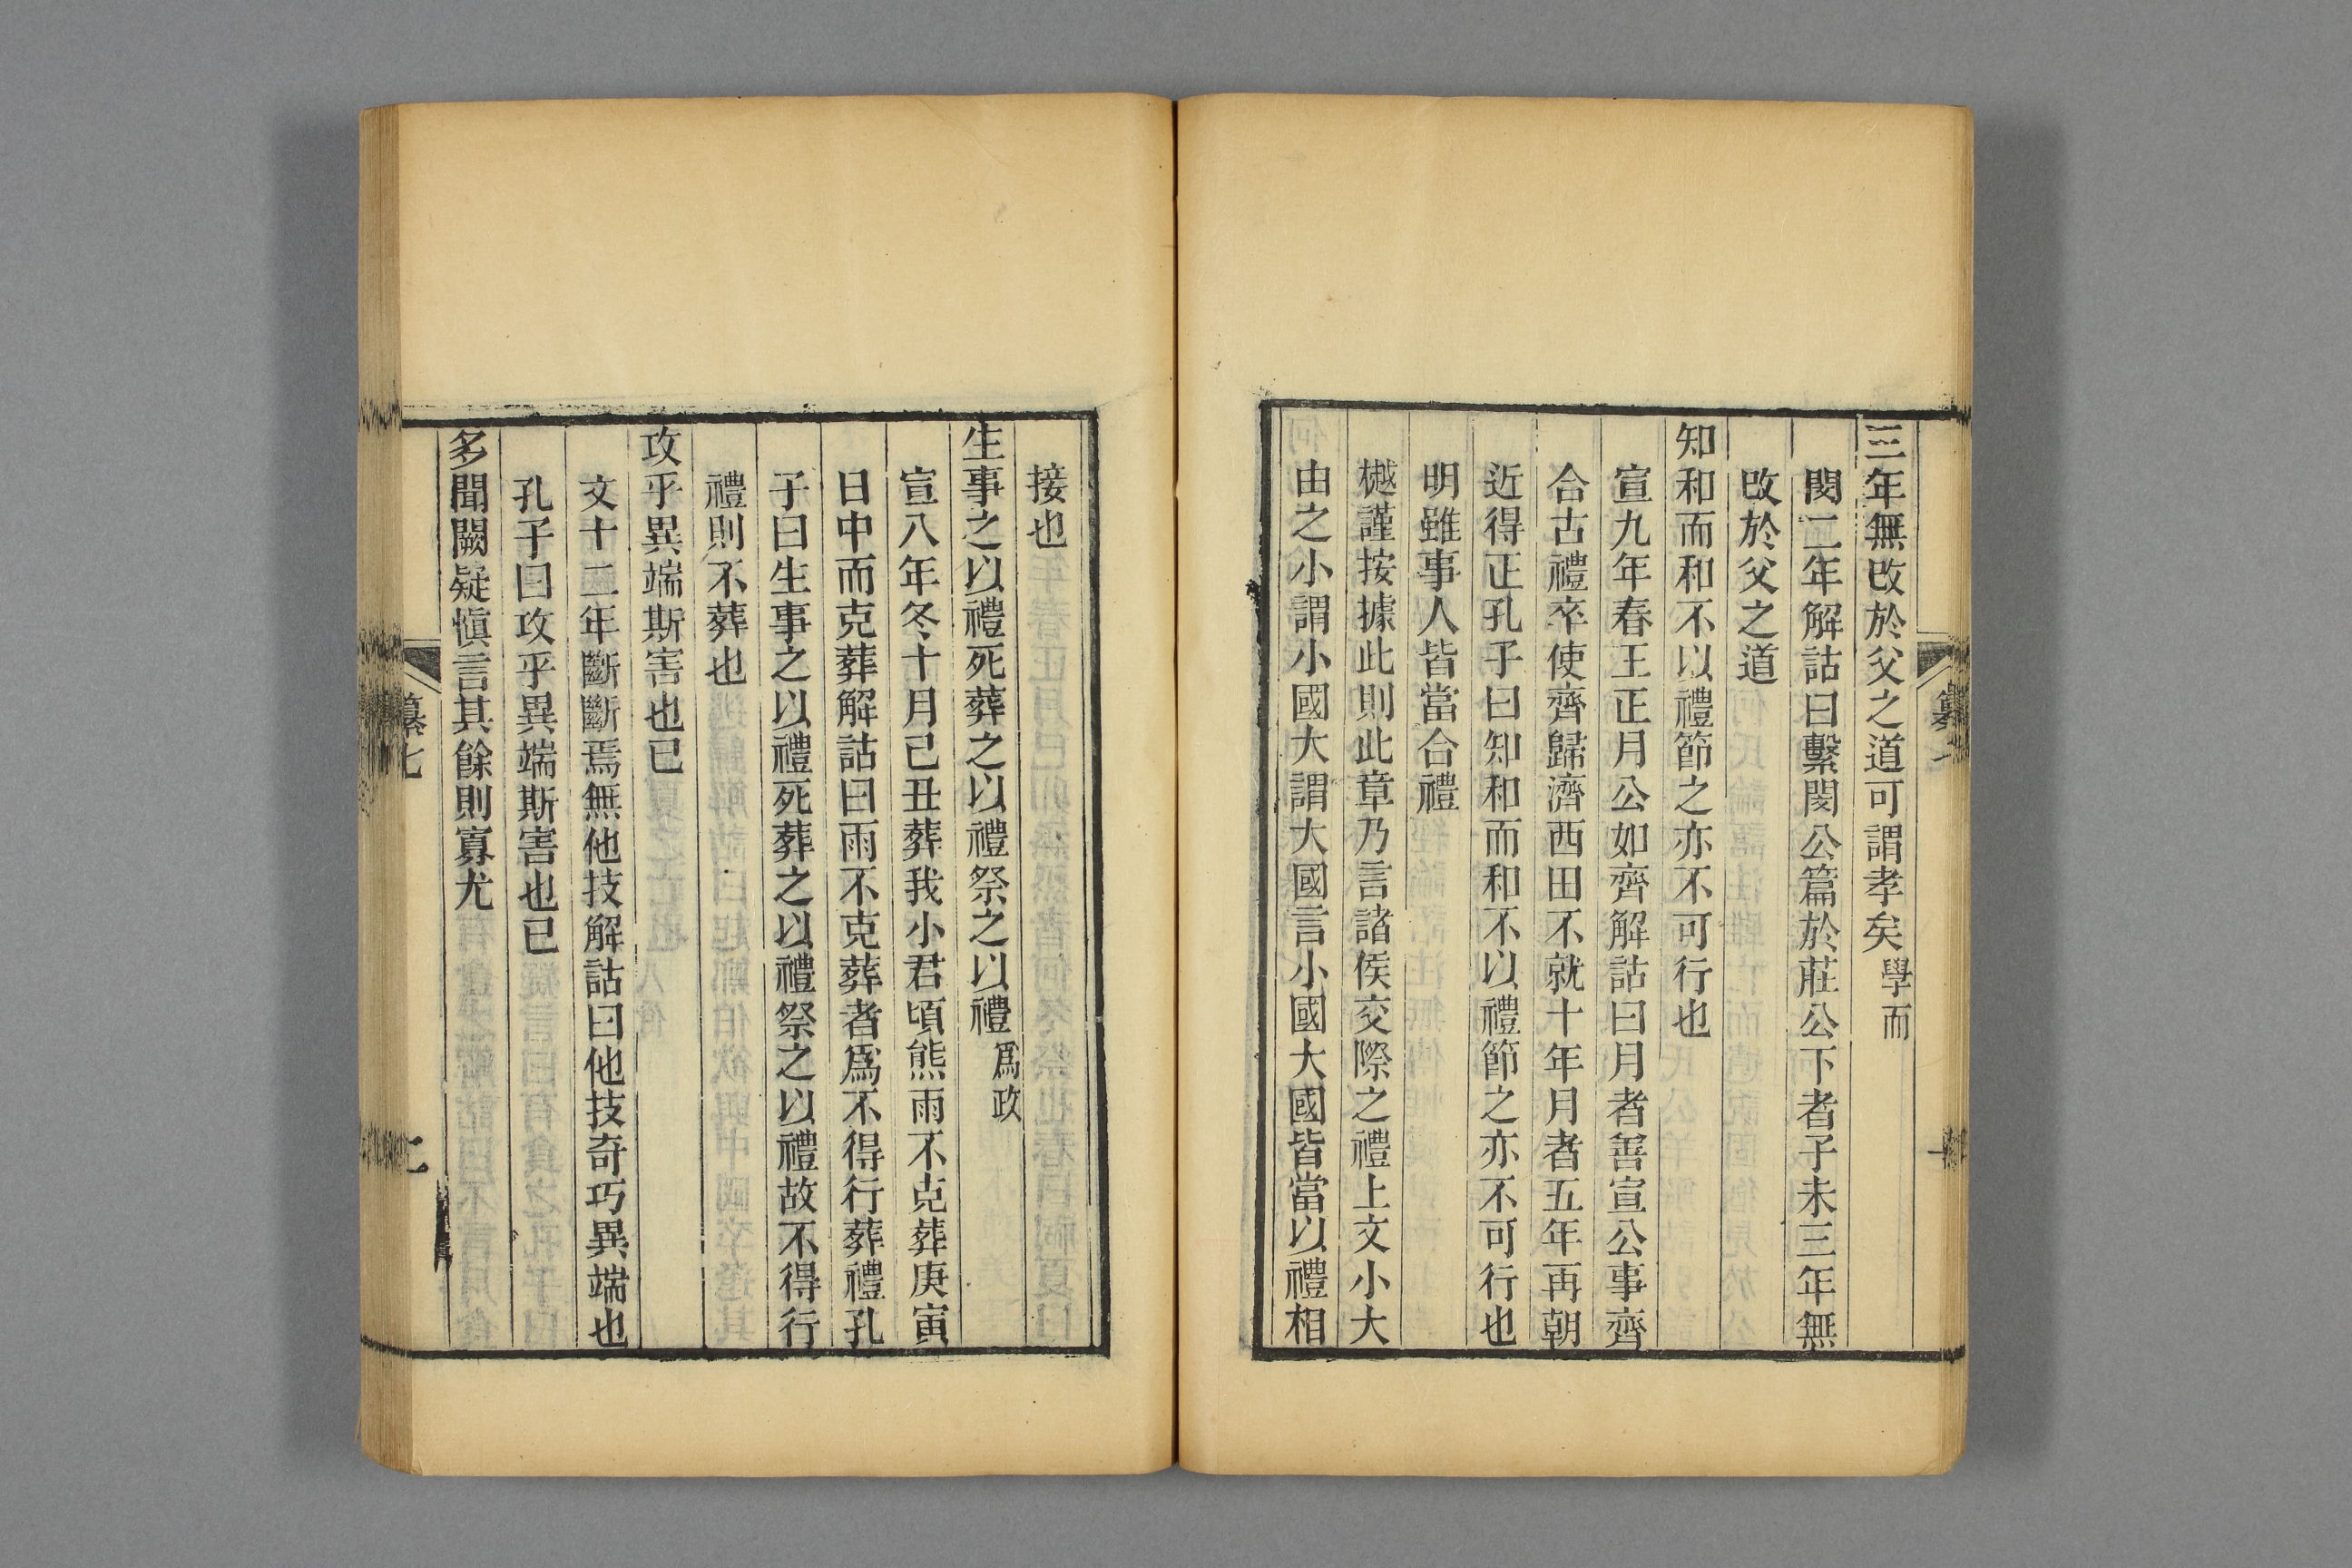 三年無改於父之道可謂孝矣學而
閔二年解詁曰繫閔公篇於莊公下者子未三年無
改於父之道
知和而和不以禮節之亦不可行也
宣九年春王正月公如齊解詁曰月者善宣公事齊
合古禮卒使齊歸濟西田不就十年月者五年再朝
近得正孔子曰知和而和不以禮節之亦不可行也
明雖事人皆當合禮
樾謹按據此則此章乃言諸侯交際之禮上文小大
由之小謂小國大謂大國言小國大國皆當以禮相
接也
生事之以禮死葬之以禮祭之以禮爲政
宣八年冬十月己丑葬我小君頃熊雨不克葬庚寅
日中而克葬解詁曰雨不克葬者爲不得行葬禮孔
子曰生事之以禮死葬之以禮祭之以禮故不得行
禮則不葬也
攻乎異端斯害也已
文十二年斷斷焉無他技解詁曰他技奇巧異端也
孔子曰攻乎異端斯害也已
多聞闕疑愼言其餘則寡尤
纂七
七